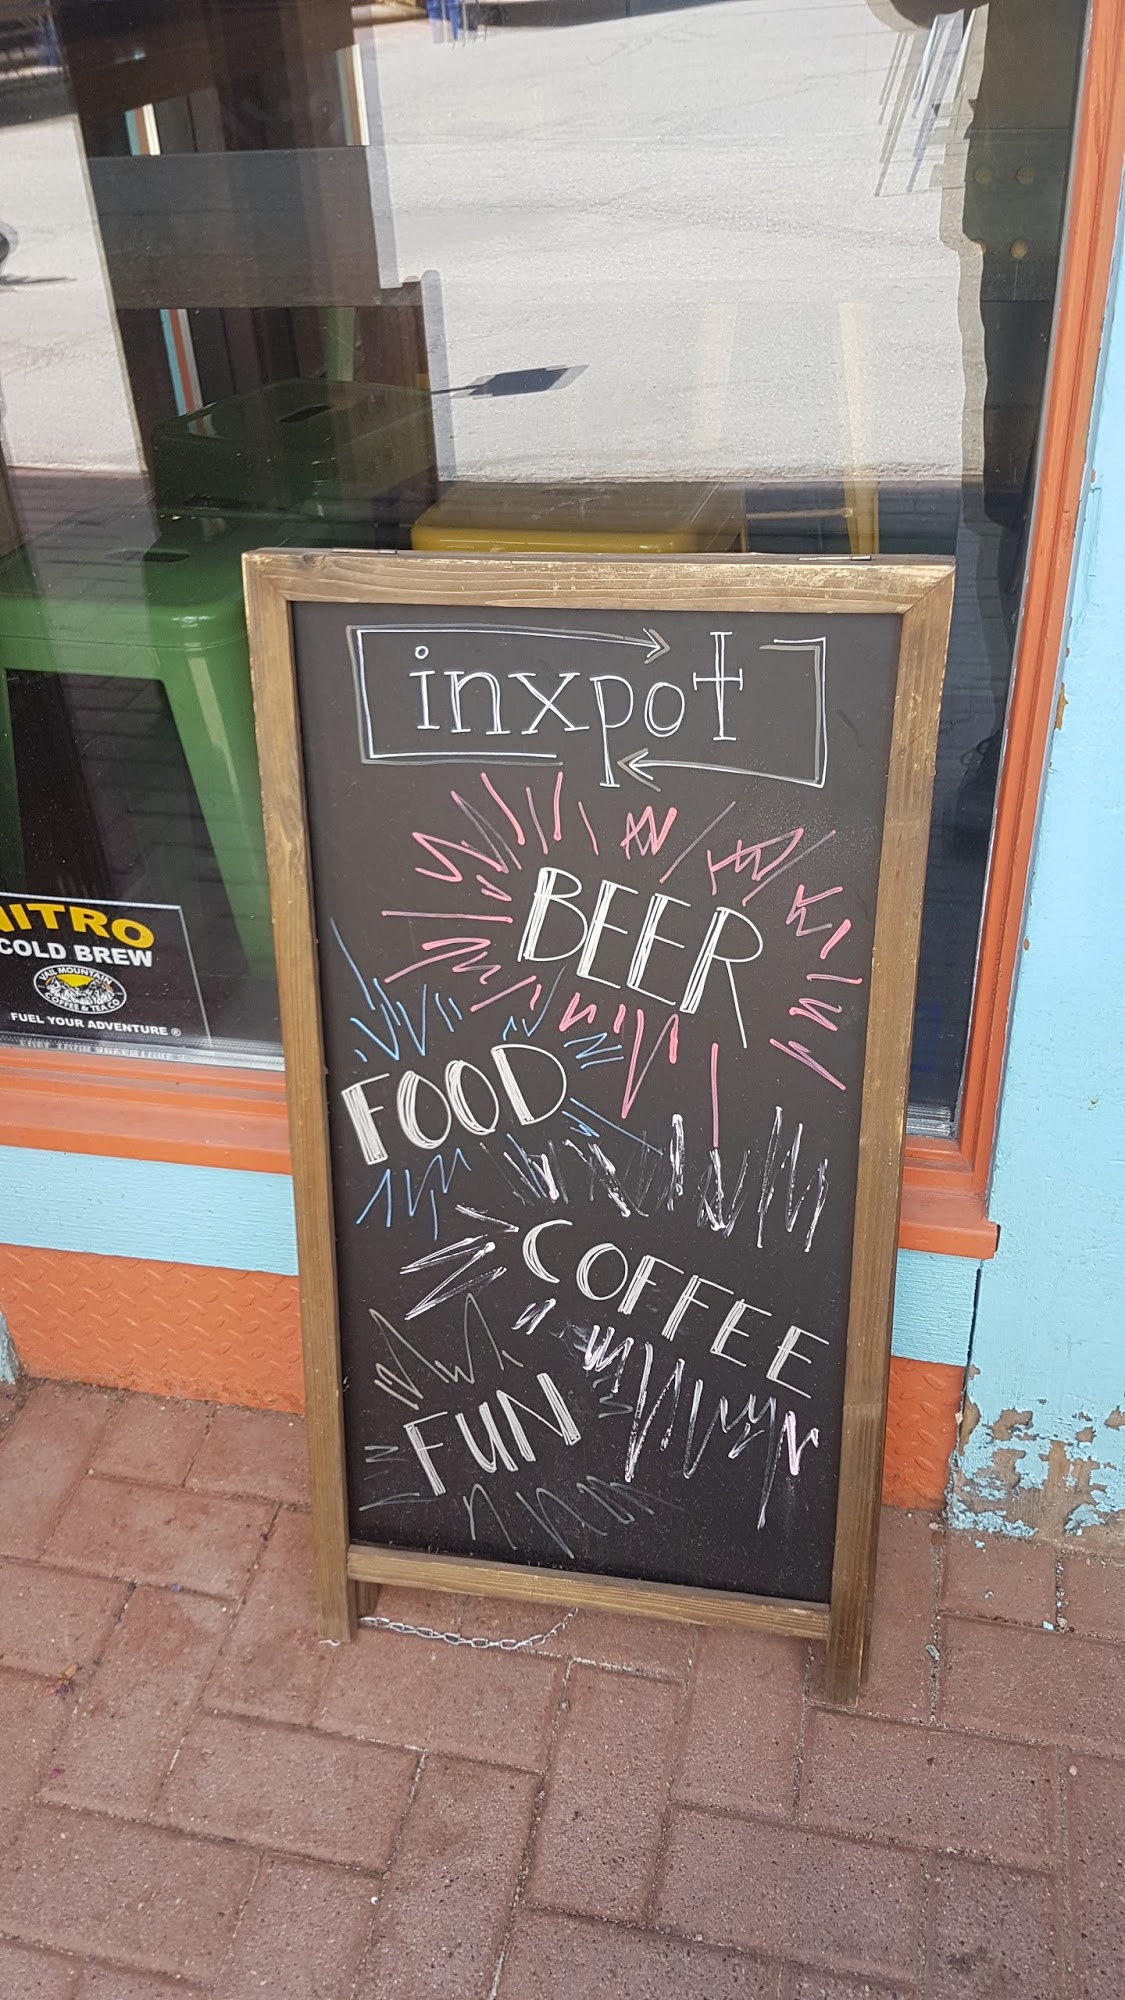 inxpot
BEER
FOOD
COFFEE
FUN
NITRO
COLD BREW
VAIL MOUNTAIN
COFFEE & TEA CO
FUEL YOUR ADVENTURE ®